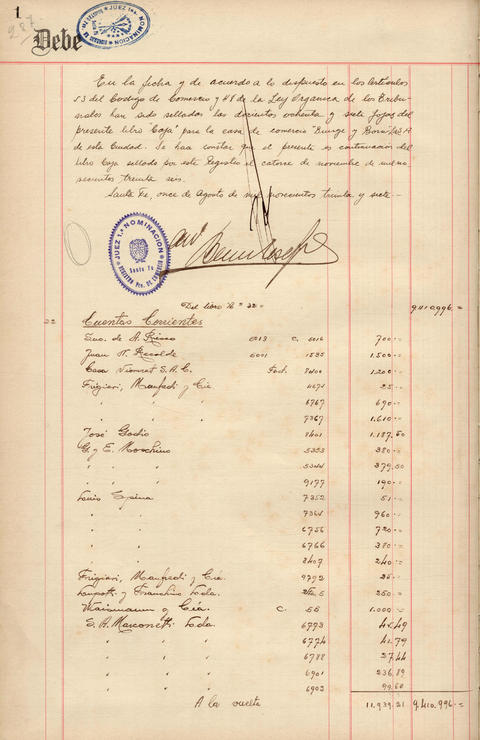 1
287
Debe
JUEZ 1ª NOMINACION
En la fecha y de acuerdo a lo dispuesto en los Artículos
53 del Codigo de Comercio y 48 de la Ley Organica de los Tribu-
nales han sido selladas las docientos ochenta y siete fojas del
presente libro "Caja" para la casa de comercio "Bunge y Born" Ltda S/A
de esta Ciudad. Se hace constar que el presente es continuacion del
libro Caja sellado por este Registro el catorce de noviembre de mil no-
vecientos treinta seis.
Santa Fe, once de Agosto de mil novecientos treinta y siete.-
JUEZ 1ª NOMINACION
Santa Fe
REGISTRO PCO. DE COMERCIO
Del libro Nº 22 = 9.410.996.=
22 Cuentas Corrientes
Suc. de A. 6213 C. 6216 700.-=
Juan N. Recalde 6001 1535 1.500.-=
Casa Vionnet S.A.C. Fact. 8400 1.200.-=
Frigieri, Manfredi y Cía. 4672 25.-=
" " " 6767 690.-=
" " " 7367 1.610.-=
José Godio 8401 1.187.50
G. y E. Moschino 5353 380.-=
" " " 5344 379.50
" " " 9177 190.-=
Luis Espina 7352 51.-=
" " 7364 960.-=
" " 6756 720.-=
" " 6766 380.-=
" " 3407 240.-=
Frigieri, Manfredi y Cía. 9792 25.-=
y Franchino Ltda. 250.-=
y Cía. C. 55 1.000.-=
S. A. Marconetti Ltda. 6773 41.49
" " " 6774 41.79
" " " 6788 27.44
" " " 6901 236.89
" " " 6902 99.60
A la vuelta 11.939.21 9.410.996.=